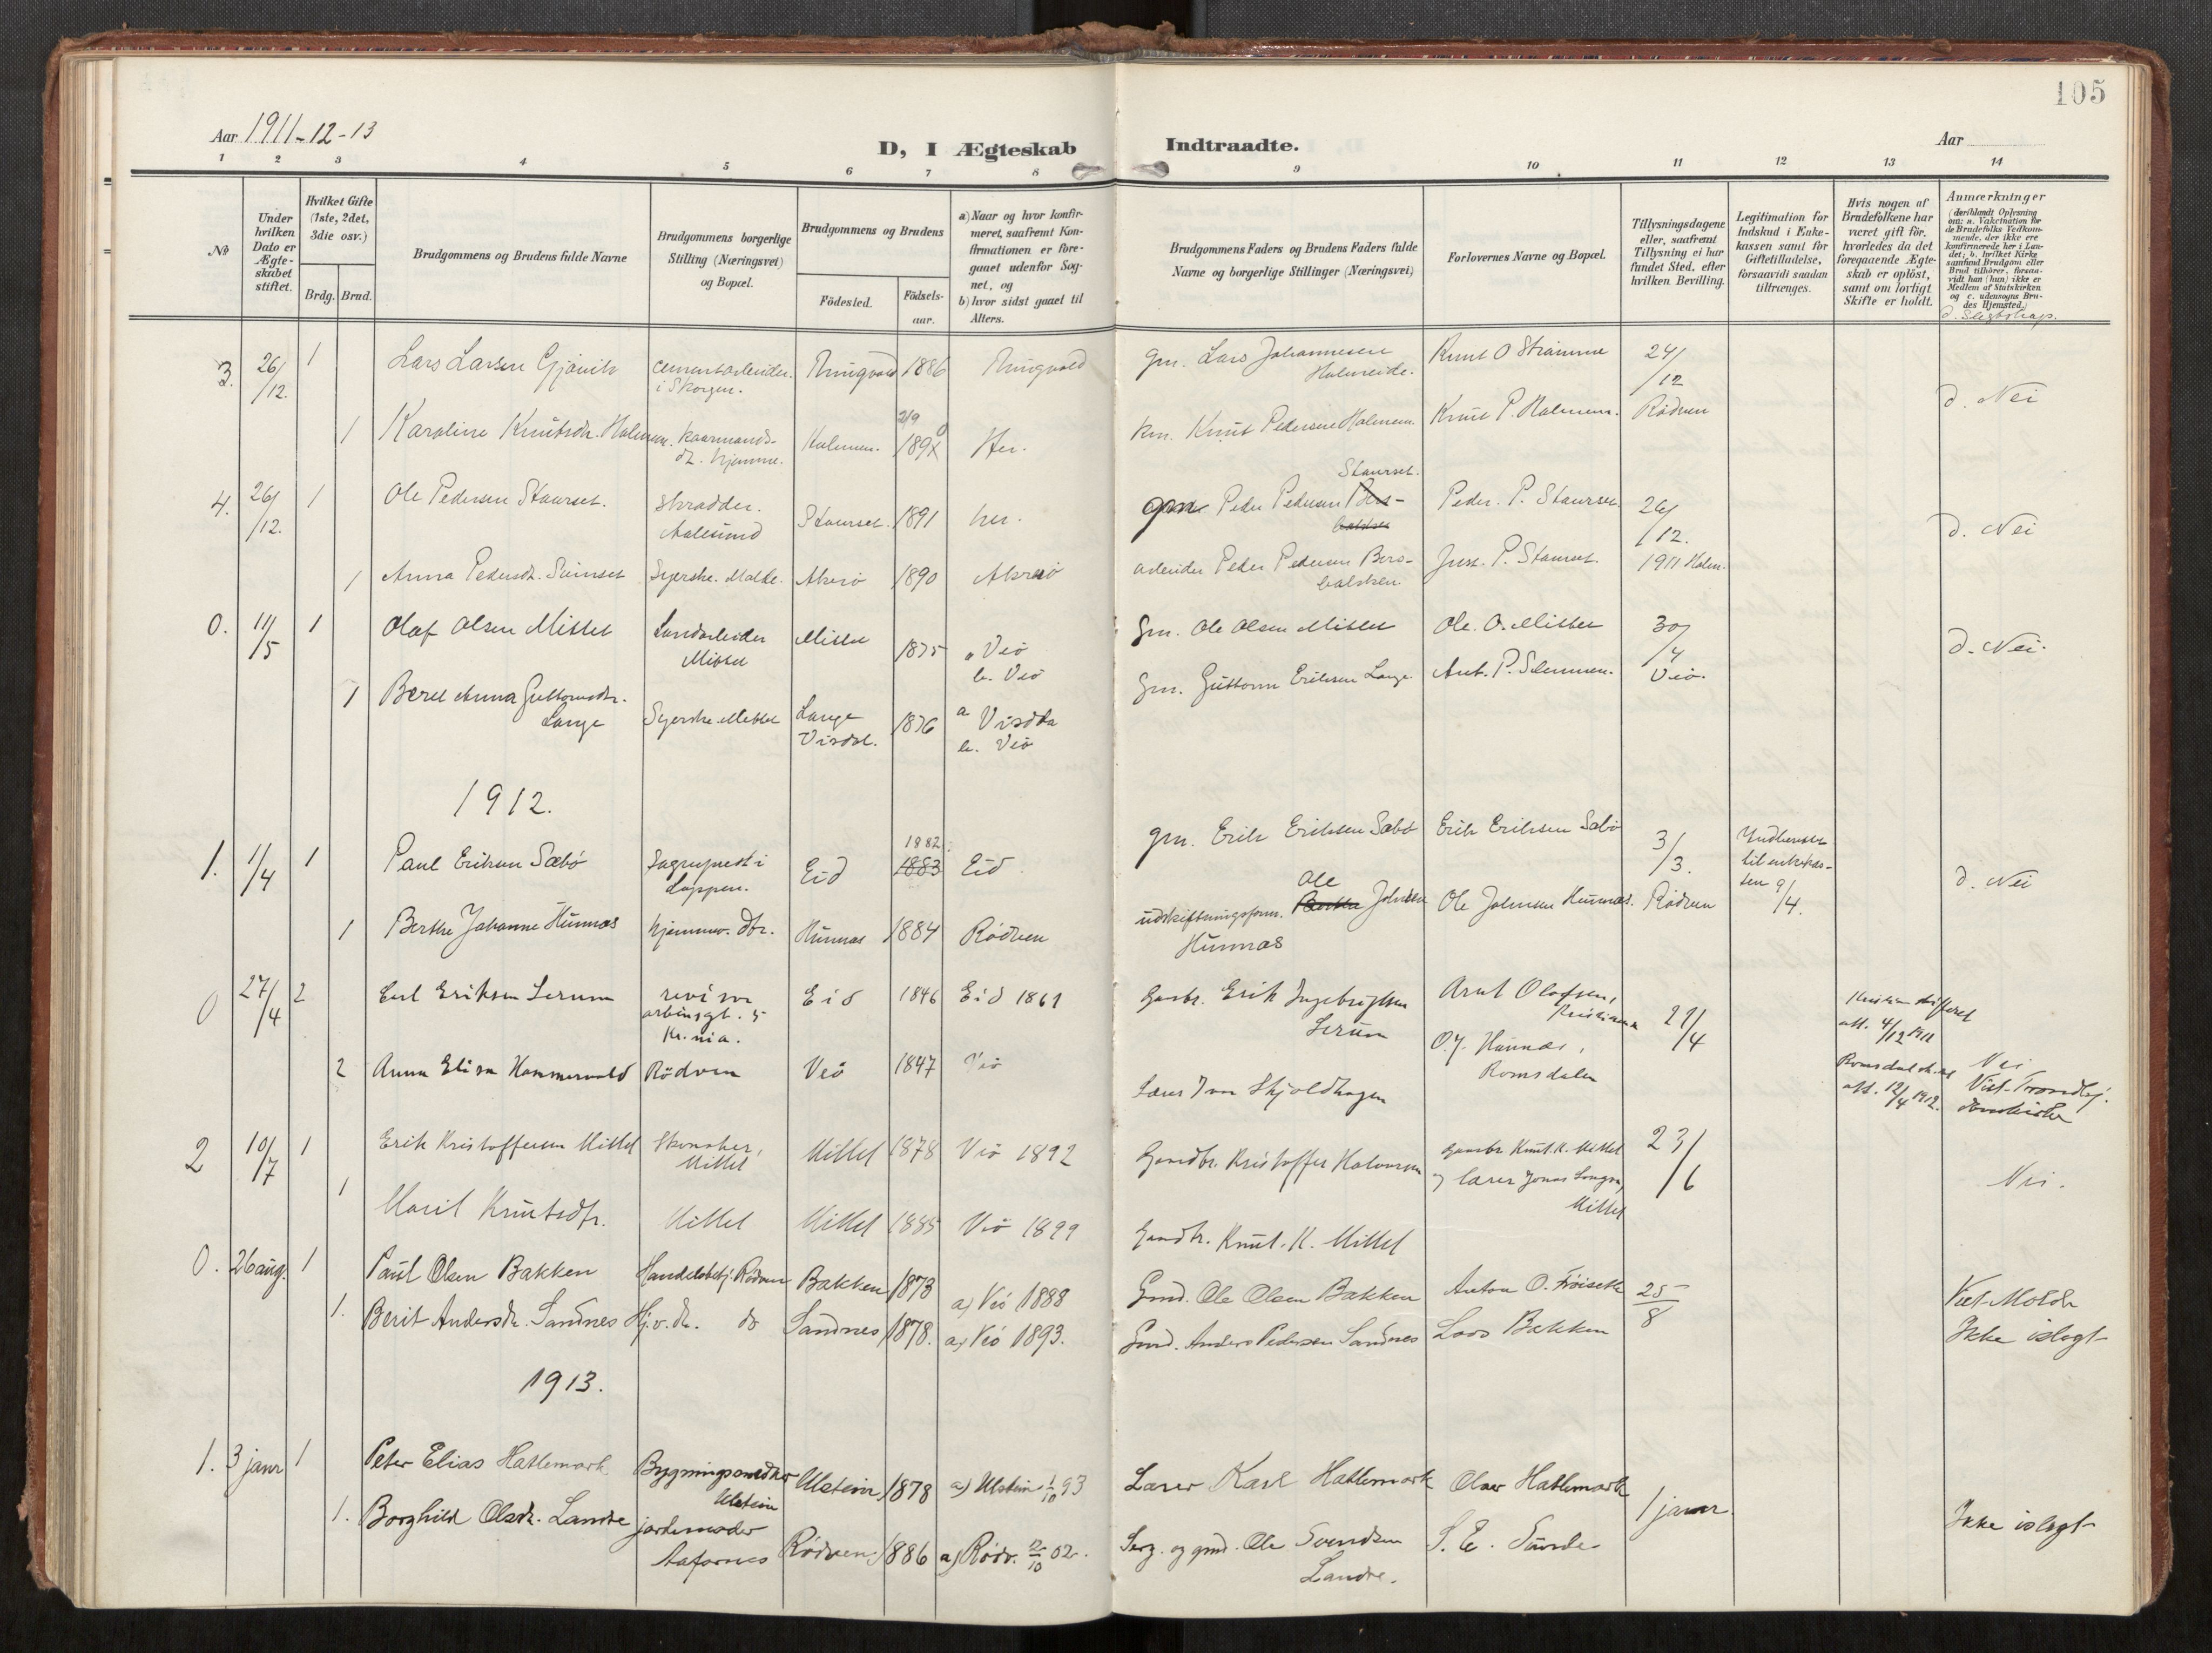 105
Aar 1911-12-13
D, I Ægteskab Indtraadte.
Aar
1 2 3 4 5 6 7 8 9 10 11 12 13 14
No
Under hvilken Dato er Ægteskabet stiftet.
Hvilket Gifte (1ste, 2det, 3die osv.)
Brdg. Brud.
Brudgommens og Brudens fulde Navne
Brudgommens borgerlige Stilling (Næringsvei) og Bopæl.
Brudgommens og Brudens
Födested. Födsels-aar.
a) Naar og hvor konfir-
meret, saafremt Kon-
firmationen er fore-
gaaet udenfor Sog-
net, og
b) hvor sidst gaaet til
Alters.
Brudgommens Faders og Brudens Faders fulde
Navne og borgerlige Stillinger (Næringsvei)
Forlovernes Navne og Bopæl.
Tillysningsdagene
eller, saafremt
Tillysning ei har
fundet Sted, efter
hvilken Bevilling.
Legitimation for
Indskud i Enke-
kassen samt for
Giftetilladelse,
forsaavidt saadan
tiltrænges.
Hvis nogen af
Brudefolkene har
været gift för,
hvorledes da det
foregaaende Ægte-
skab er oplöst,
samt om lovligt
Skifte er holdt.
Anmærkninger
(deriblandt Oplysning
om: a. Vakcination for
de Brudefolks Vedkom-
mende, der ikke ere
konfirmerede her i Lan-
det; b. hvilket Kirke-
samfund Brudgom eller
Brud tilhörer, forsaa-
vidt han (hun) ikke er
Medlem af Statskirken
og c. udensogns Bru-
des Hjemsted.)
d. Slegtskap.
3. 26/12. 1 Lars Larsen Gjövik cementarbeider i Skorgen. 1886 gm. Lars Johannesen Holmeide. Knut O Strömme 24/12 d. Nei
1 Karoline Knutsdr. Holmem. kaarmands- dt. hjemme. Holmem. 2/9 0 189 Her. km. Knut Pedersen Holmem. Knut P. Holmem. Rödven
4. 26/12. 1 Ole Pedersen Staurset. skrædder. Aalesund Staurset. 1891 her. Staurset. gm Peder Pedersen Peder. P. Staurset 26/12. d. Nei
1 Anna Pedersdt. Syerske. Molde. Akerö 1890 Akerö arbeider Peder Pedersen P. Staurset. 1911 Holm.
0. 11/5 1 Olaf Olsen Mittet Landarbeider Mittet Mittet 1875 a Veö b. Veö Gm. Ole Olsen Mittet Ole. O. Mittet 30/4 d. Nei.
1 Beret Anna Guttormsdtr. Lange Syerske Mittet Lange Visdal. 1876 a Visdal b. Veö Gm. Guttorm Eriksen Lange Ant. P. Veö.
1912.
1. 11/4 1 Paul Eriksen Sæbö Sogneprest i Loppen. Eid 1882 1883 Eid gm. Erik Eriksen Sæbö Erik Eriksen Sæbö 3/3. til enkekas- sen 9/4. d. Nei
1 Berthe Johanne Hunnæs hjemmev. dtr. Hunnæs 1884 Rödven udskiftningsform. Ole Johnsen Hunnæs Ole Johnsen Hunnæs. Rödven
0 27/4 2 Eriksen Lerum Kr.nia. Eid 1846 Eid 1861 Gaarbr. Erik Ingebrigtsen Lerum Arnt Olafsen, Kristiania 21/4 Kristian skifteret att. 4/12 1911
2 Anna Elisa Hammervold Rödven Veö 1847 Veö Lærer Iver Skjoldhagen O.J. Hunnæs, Romsdalen att. 12/4 1912. Nei
2 10/7 1 Erik Kristoffersen Mittet Skomaker, Mittet Mittet 1878 Veö 1892 Gaardbr. Kristoffer Halvorsen Gaarbr Knut. K. Mittet 23/6 Nei.
og lærer Jonas Mittet
1 Marit Knutsdtr. Mittet Mittet 1885 Veö 1899 Gaardbr. Knut. K. Mittet
0. 26 aug. 1 Paul Olsen Bakken Handelsbetj. Rödven Bakken 1873 a) Veö 1888 Gmd. Ole Olsen Bakken Anton O. Fröiseth 25/8 Viet Molde
1. Berit Andersdr. Sandnes Hj.v.dr. do Sandnes 1878. a) Veö 1893. Gmd. Anders Pedersen Sandnes Lars Bakken Ikke i slegt
1913.
1. 3 janr 1 Peter Elias Hatlemark Bygningssnedker Ulstein Ulstein 1878 a) Ulstein 1/10 93 Lærer Karl Hatlemark Oluer Hatlemark 1 janr. Ikke i slegt
1. Borghild Olsdr. Landre jordemoder Aafarnes Rödven 1886 a) Rödv. 12/10 02. Serg. og gmd. Ole Svendsen Landre. S. E. Sunde